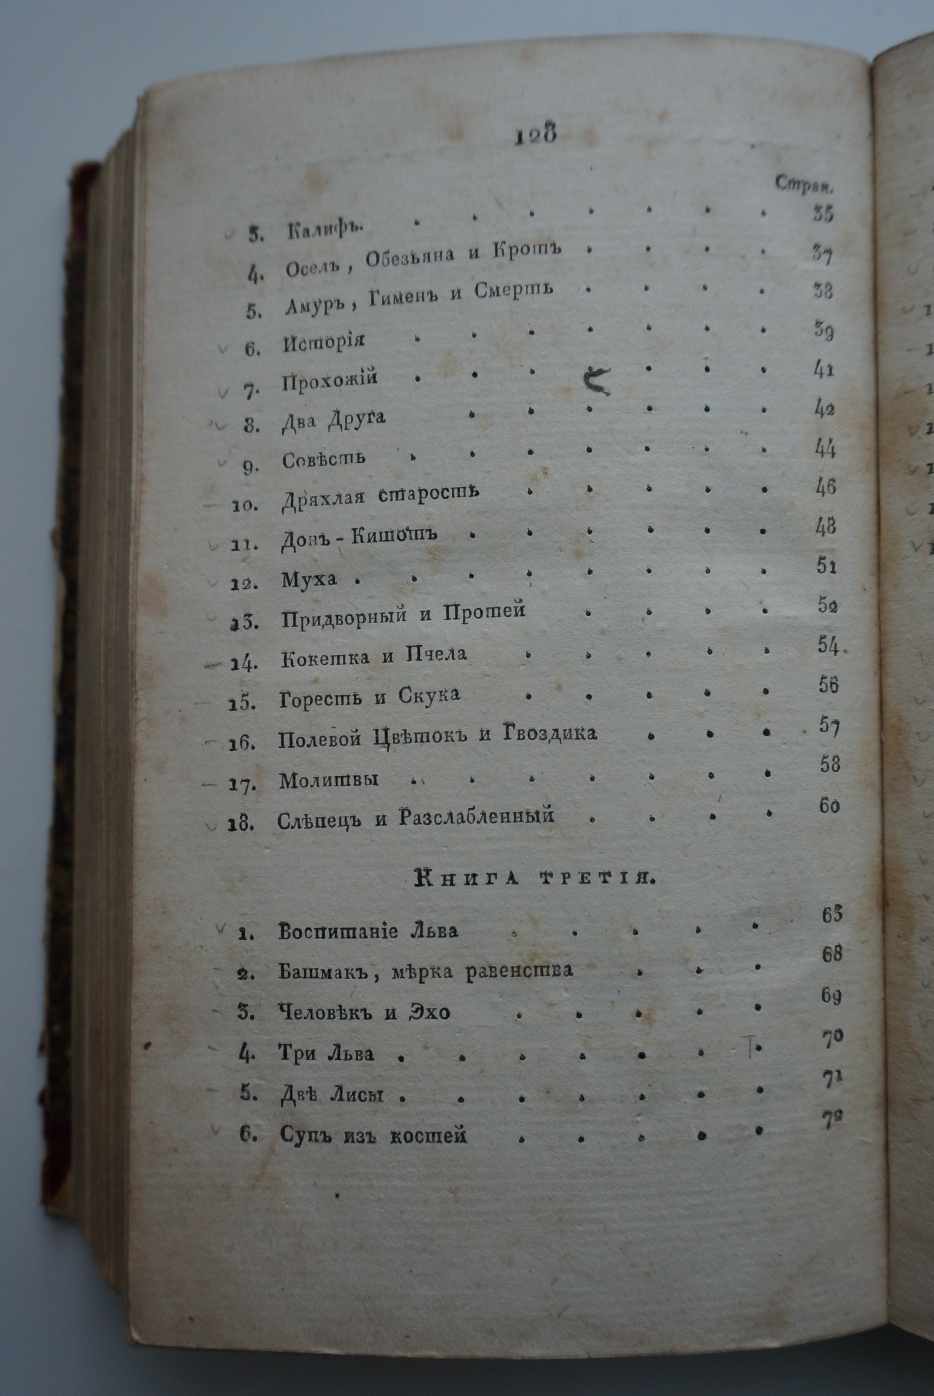 128
Стран.
3. Калифъ. . . . . . . . 35
4. Оселъ, Обезьяна и Кротъ . . . . 37
5. Амуръ, Гименъ и Смерть . . . . 38
6. Исторія . . . . . . . 39
7. Прохожій . . . . . . 41
8. Два Друга . . . . . . 42
9. Совѣсть . . . . . . . 44
10. Дряхлая старость . . . . . 46
11. Донъ-Кишотъ . . . . . . 48
12. Муха . . . . . . . . 51
13. Придворный и Протей . . . . 52
14. Кокетка и Пчела . . . . . 54
15. Горесть и Скука . . . . . 56
16. Полевой Цвѣтокъ и Гвоздика . . . 57
17. Молитвы . . . . . . . 58
18. Слѣпецъ и Разслабленный . . . . 60
Книга третія.
1. Воспитаніе Льва . . . . . 63
2. Башмакъ, мѣрка равенства . . . 68
3. Человѣкъ и Эхо . . . . . 69
4. Три Льва . . . . . . . 70
5. Двѣ Лисы . . . . . . . 71
6. Супъ изъ костей . . . . . 72